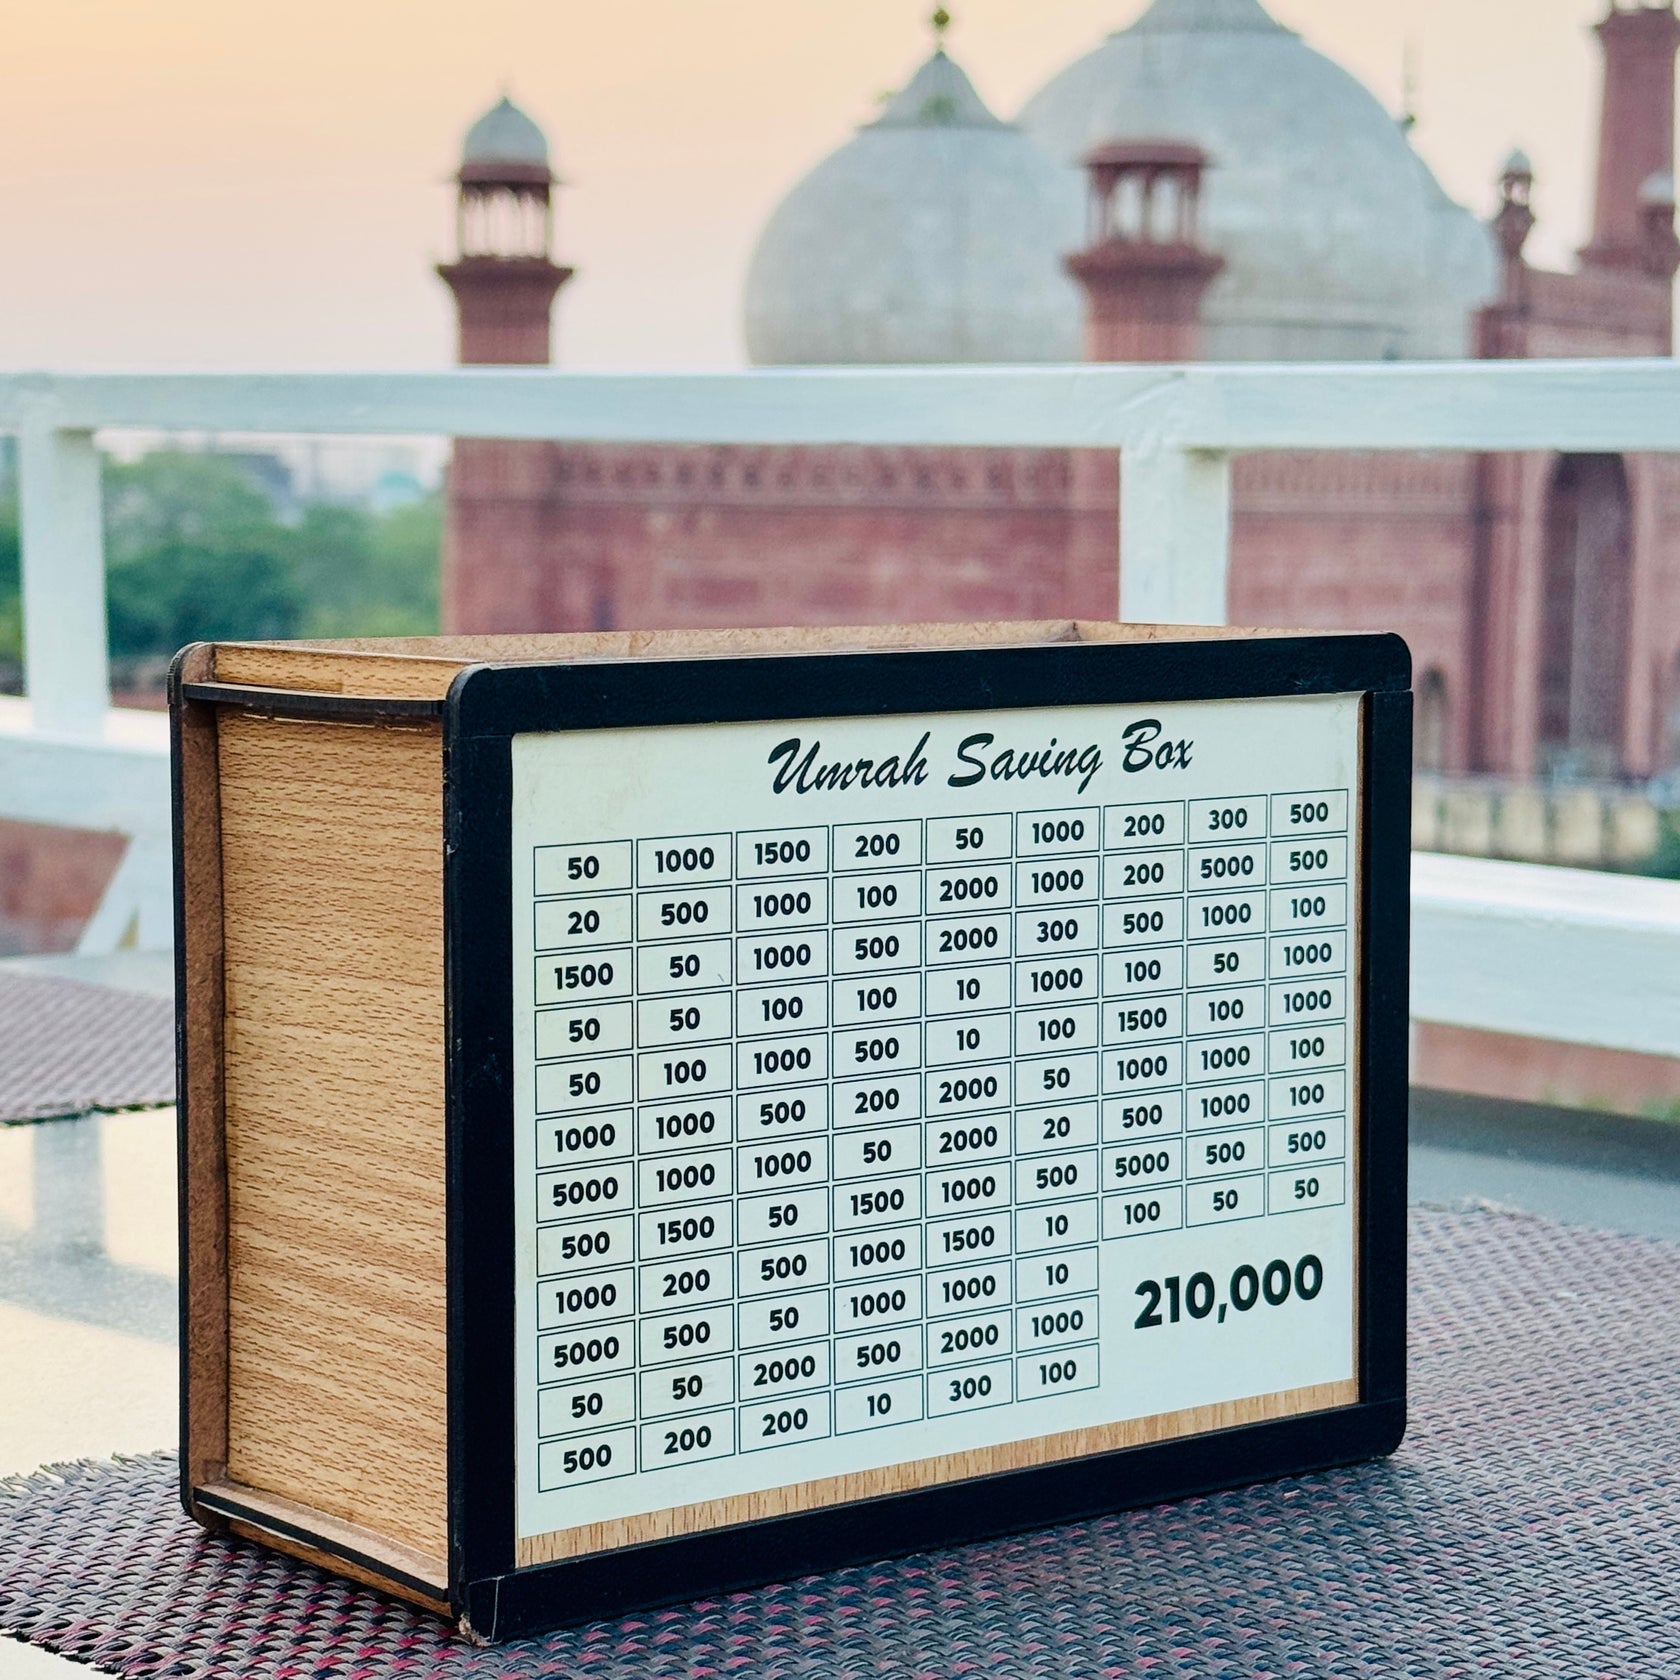 Umrah Saving Box
50 1000 1500 200 50 1000 200 300 500
20 500 1000 100 2000 1000 200 5000 500
1500 50 1000 500 2000 300 500 1000 100
50 50 100 100 10 1000 100 50 1000
50 100 1000 500 10 100 1500 100 1000
1000 1000 500 200 2000 50 1000 1000 100
5000 1000 1000 50 2000 20 500 1000 100
500 1500 50 1500 1000 500 5000 500 500
1000 200 500 1000 1500 10 100 50 50
5000 500 50 1000 1000 10
50 50 2000 500 2000 1000
500 200 200 10 300 100
210,000